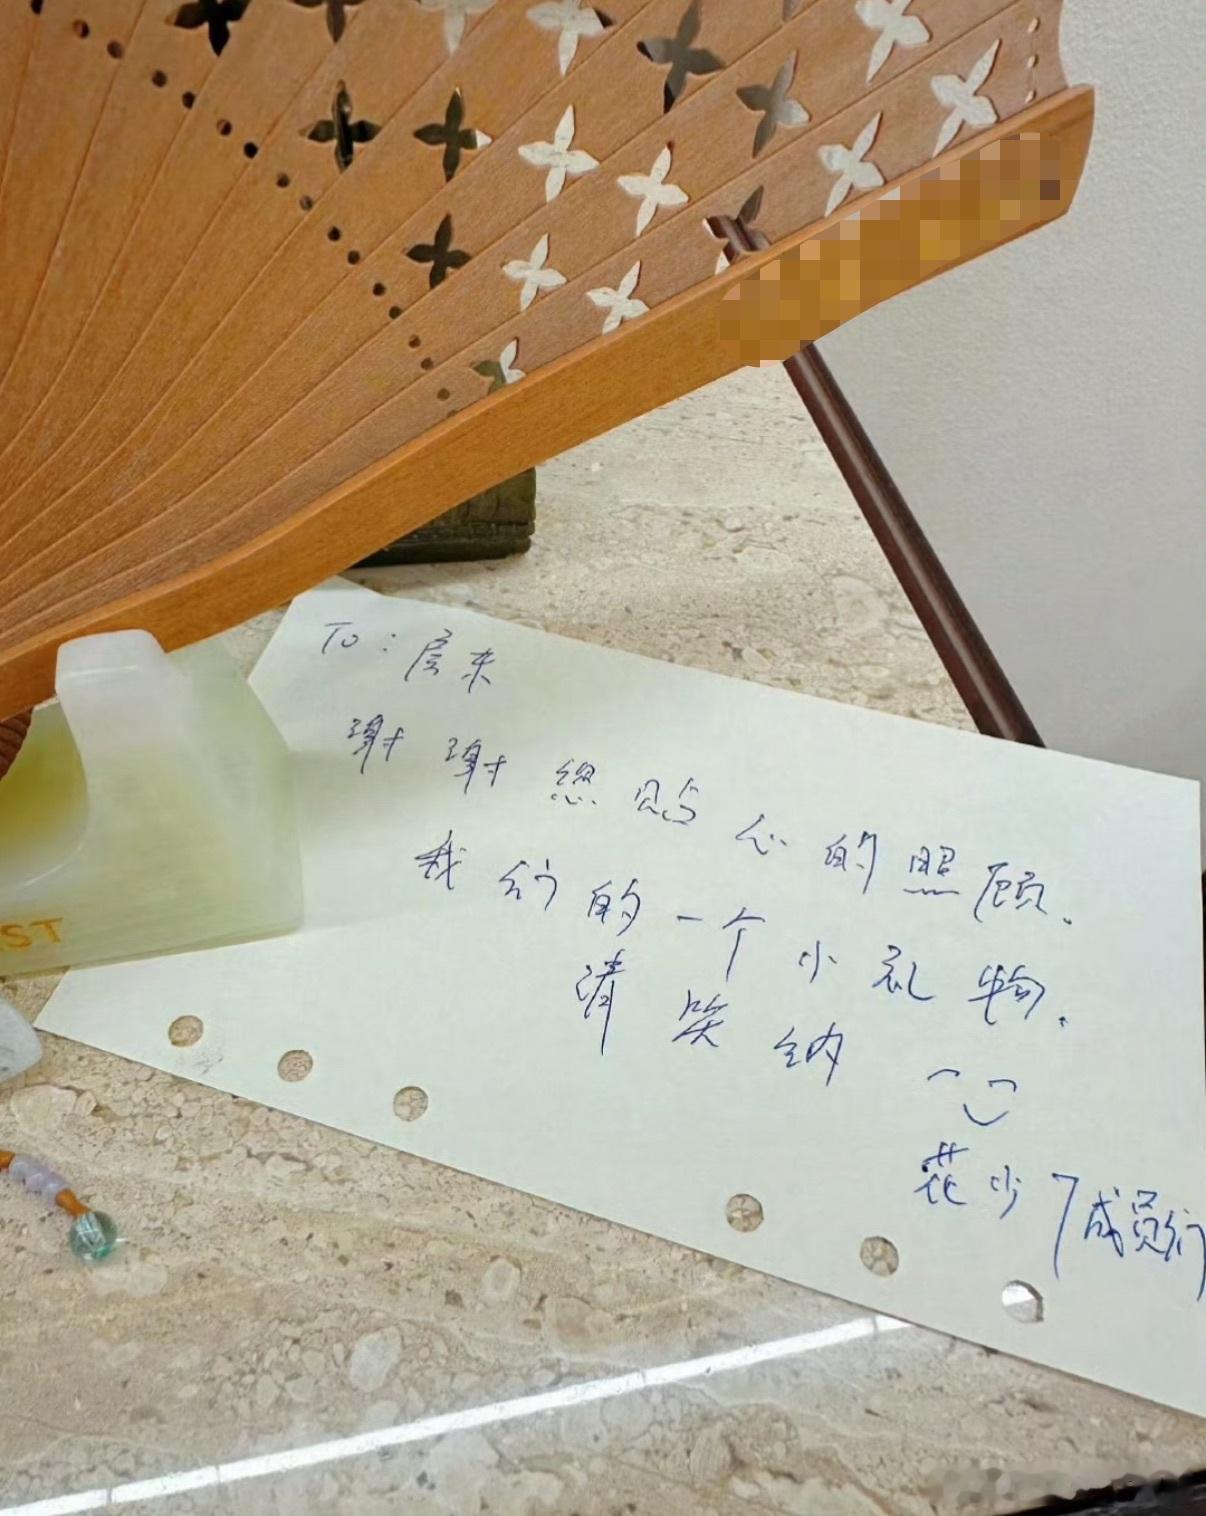 To：房东
谢谢您贴心的照顾.
我们的一个小礼物.
请笑纳
花少7成员们
ST